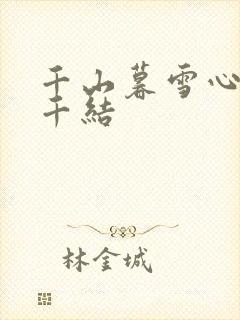 千山暮雪心
千結
林金城